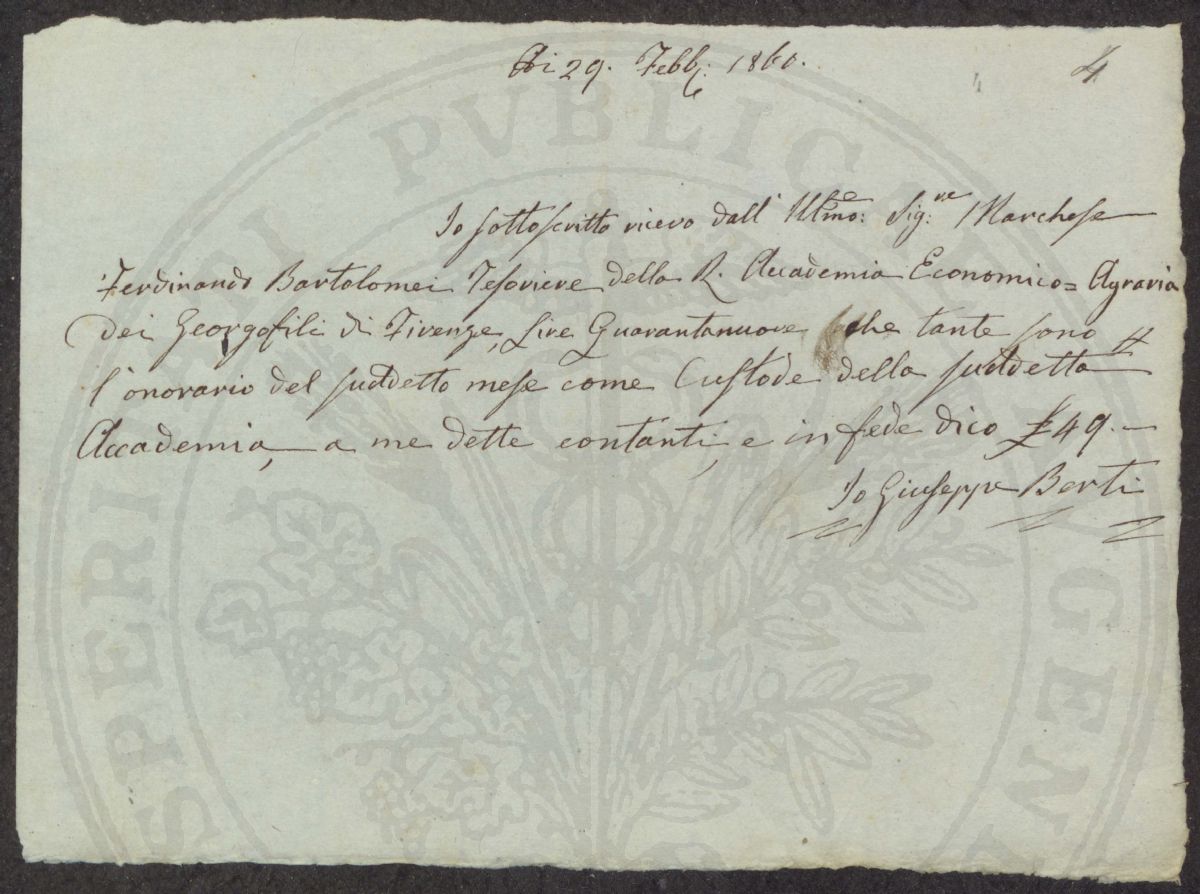 Adi 29. Febb: 1860.
4
Io sottoscritto ricevo dall' Illmo: Sig:re Marchese
Ferdinando Bartolomei Tesoriere della R. Accademia Economico= Agraria
dei Georgofili di Firenze, Lire Quarantanuove che tante sono
l'onorario del suddetto mese come Custode della suddetta
Accademia, a me dette contanti, e in fede dico £ 49. —
Io Giuseppe Berti
PROSPERITATI PVBLICAE AVGENDAE